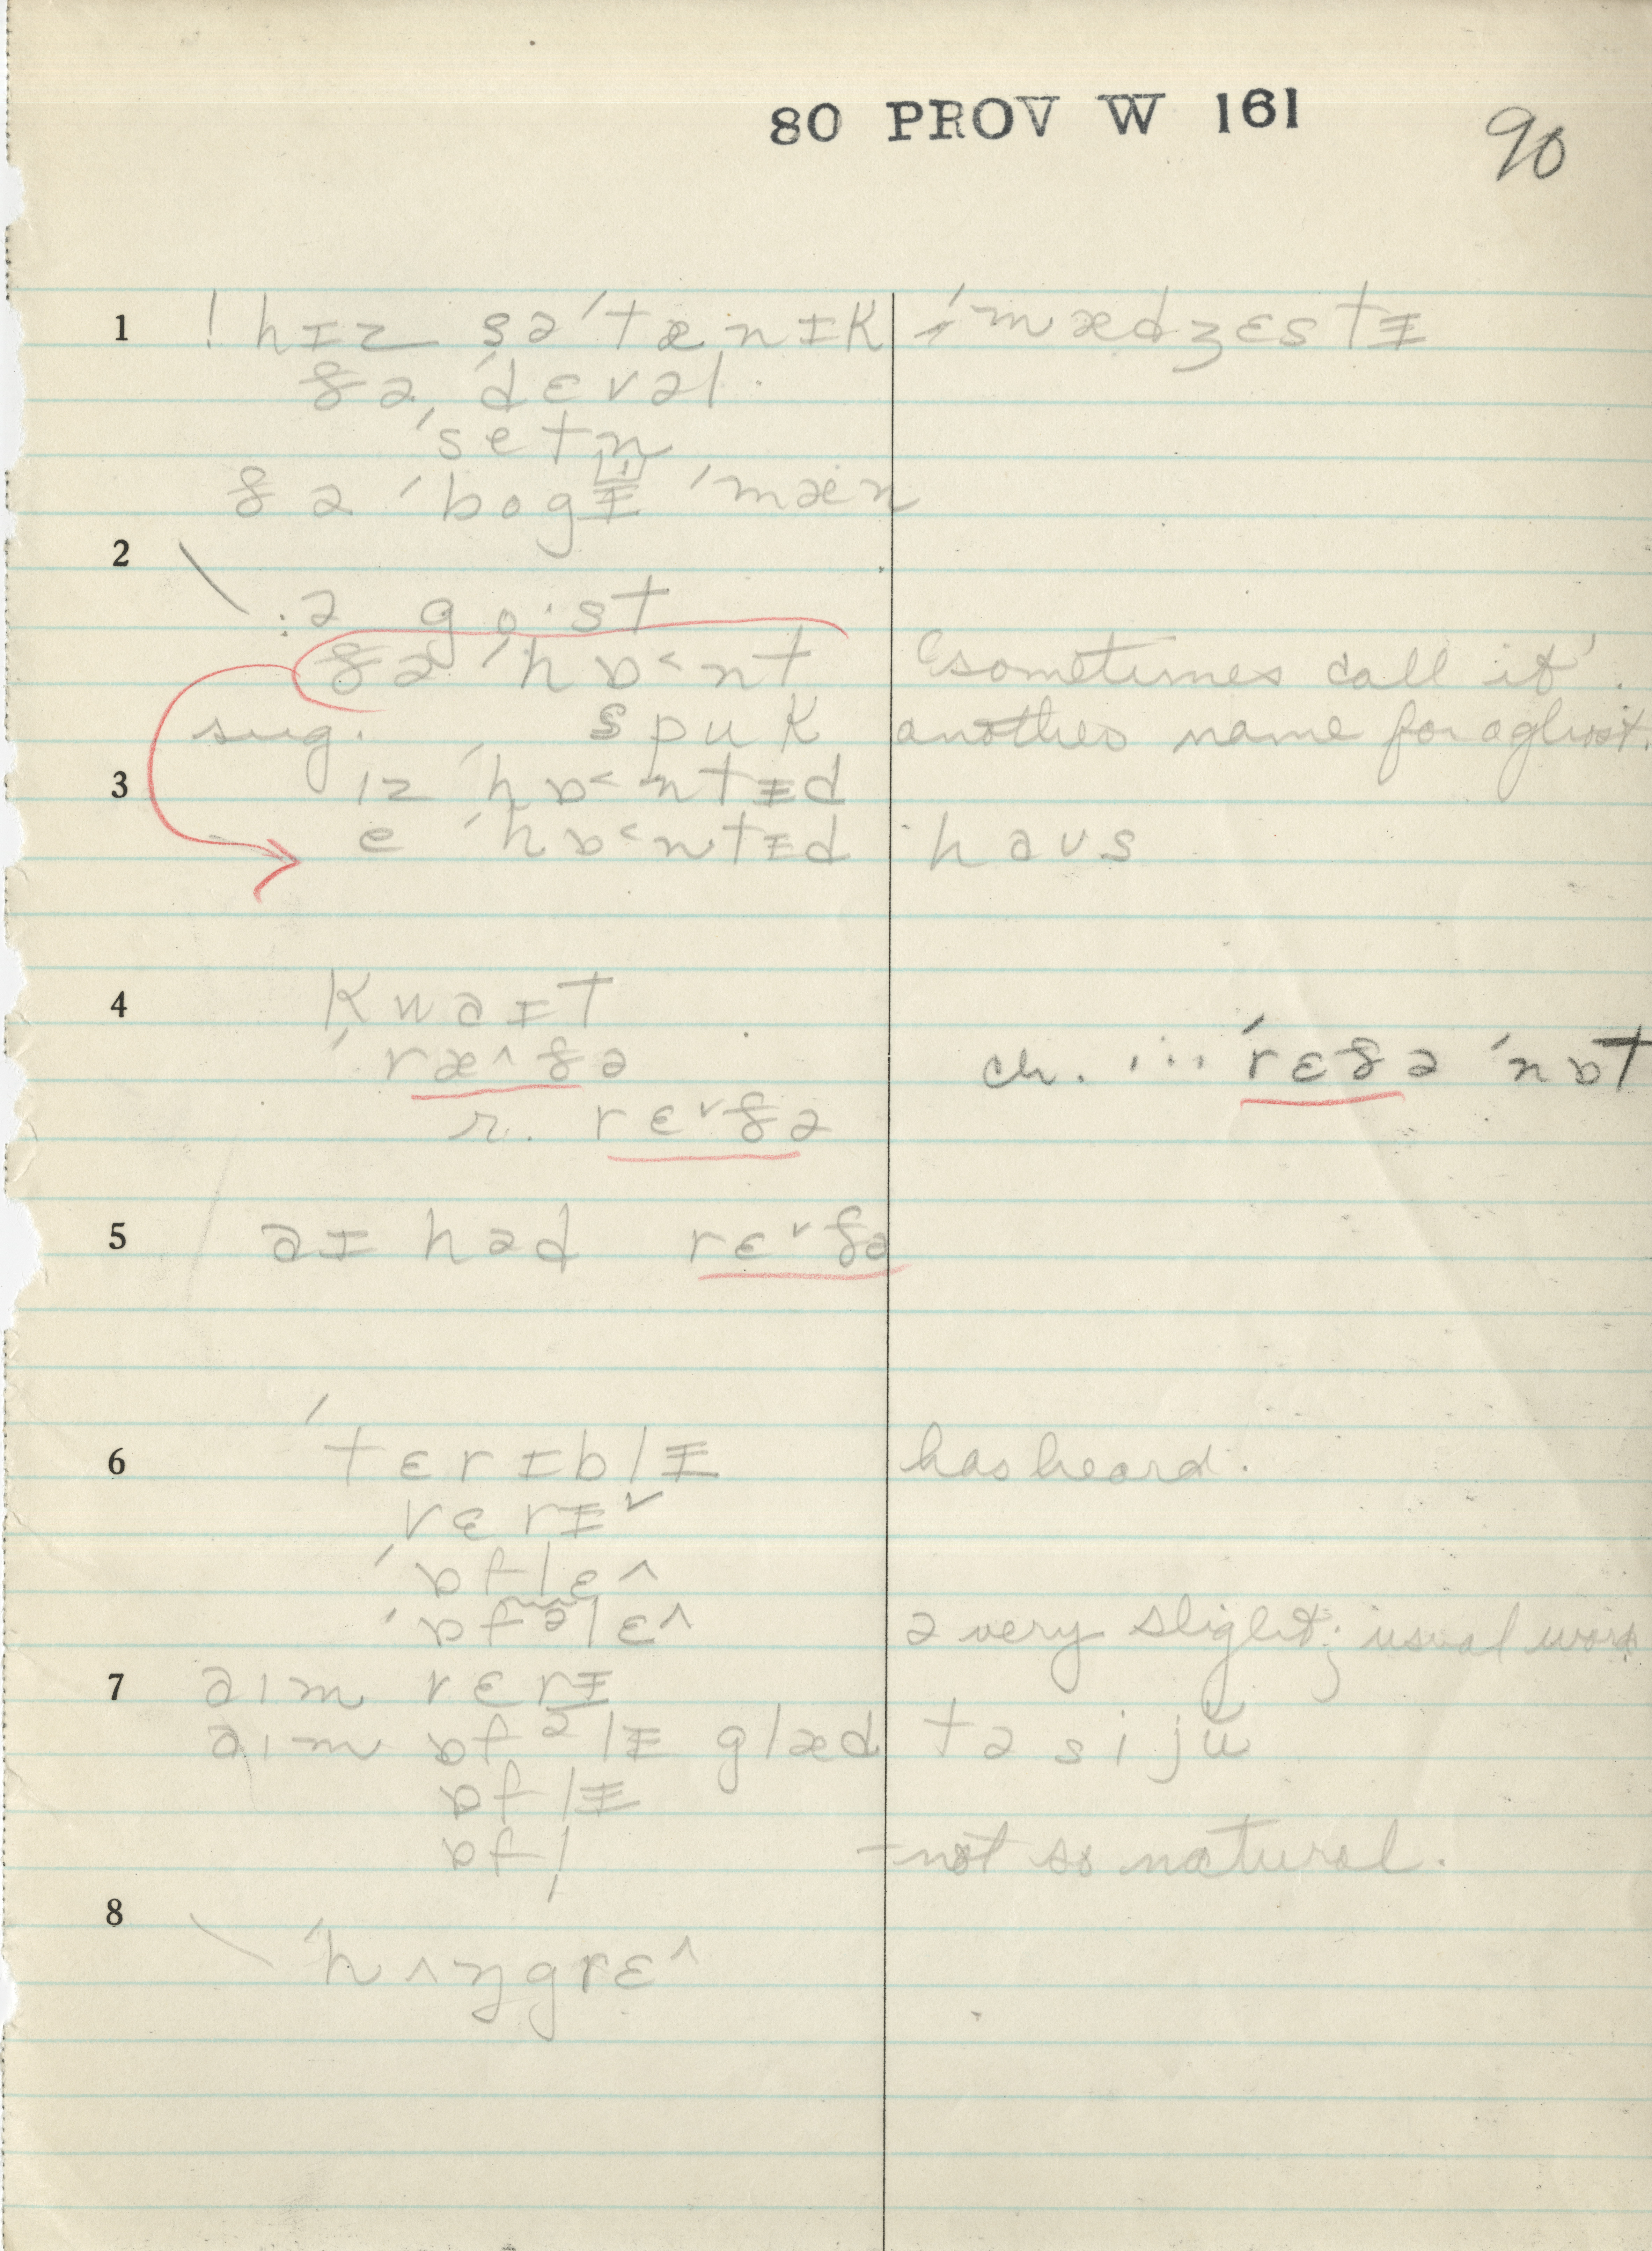 80 PROV W 161
90
1 ! hɪz sə ˈtænɪk ˈmædʒɛstᵻ
ðə ˈdɛvəl
ˈsetn
ðə ˈbogᵻ ˈmæn
2 \ :ə go·st
ðə ˈhɒ˂nt "sometimes call it".
sug. spuk another name for a ghost.
3 ɪz ˈhɒ˂ntᵻd
ə ˈhɒ˂ntᵻd haʊs
4 kwaɪt
ˈræ^ðə ch. ... ˈrɛðə ˈnɒt
r. rɛ˅ðə
5 aɪ həd rɛ˅ðə
6 ˈtɛrɪblᵻ has heard.
vɛrɪ˅
ˈɒflɛ^
ˈɒfəlɛ^ ə very slight; usual word
7 aɪm vɛrᵻ
aɪm ɒfəlᵻ glæd tə si ju
ɒflᵻ
ɒfl̩ - not so natural.
8 \ ˈhʌŋgrɛ^